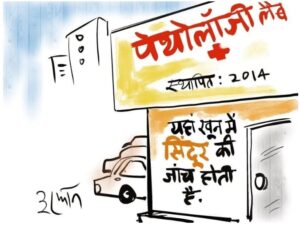 पेथोलॉजी लैब
स्थापित : 2014
यहां खून में
सिंदूर की
जांच होती
है.